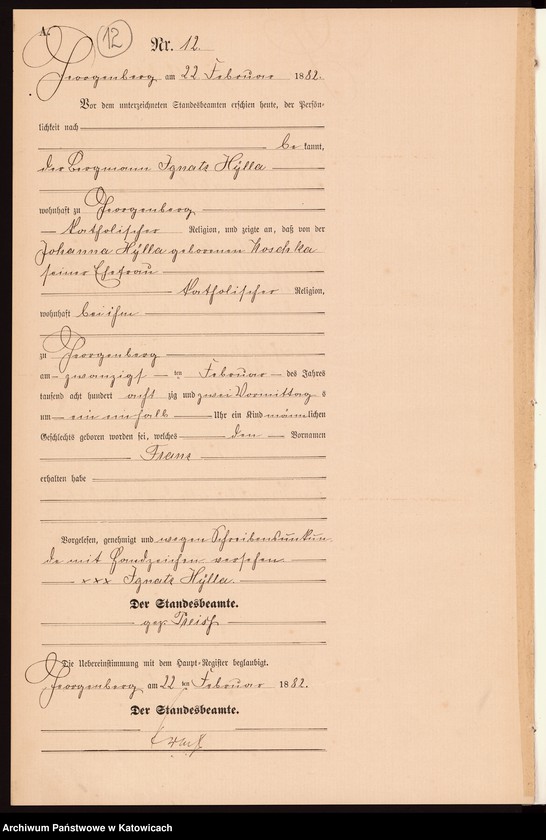 A.
12
Nr. 12.
Georgenberg am 22 Februar 1882.
Vor dem unterzeichneten Standesbeamten erschien heute, der Persön-
lichkeit nach
be kannt,
der Bergmann Ignatz Hÿlla
wohnhaft zu Georgenberg
katholischer Religion, und zeigte an, daß von der
Johanna Hÿlla geborenen Koschka
seiner Ehefrau
katholischer Religion,
wohnhaft bei ihm
zu Georgenberg
am zwanzigst ten Februar des Jahres
tausend acht hundert acht zig und zwei Vormittag s
um ein einhalb Uhr ein Kind männlichen
Geschlechts geboren worden sei, welches den Vornamen
Franz
erhalten habe
Vorgelesen, genehmigt und wegen Schreibensunkun
de mit Handzeichen versehen
xxx Ignatz Hÿlla.
Der Standesbeamte.
gez
Die Uebereinstimmung mit dem Haupt-Register beglaubigt.
Georgenberg am 22 ten Februar 1882.
Der Standesbeamte.
Archiwum Państwowe w Katowicach